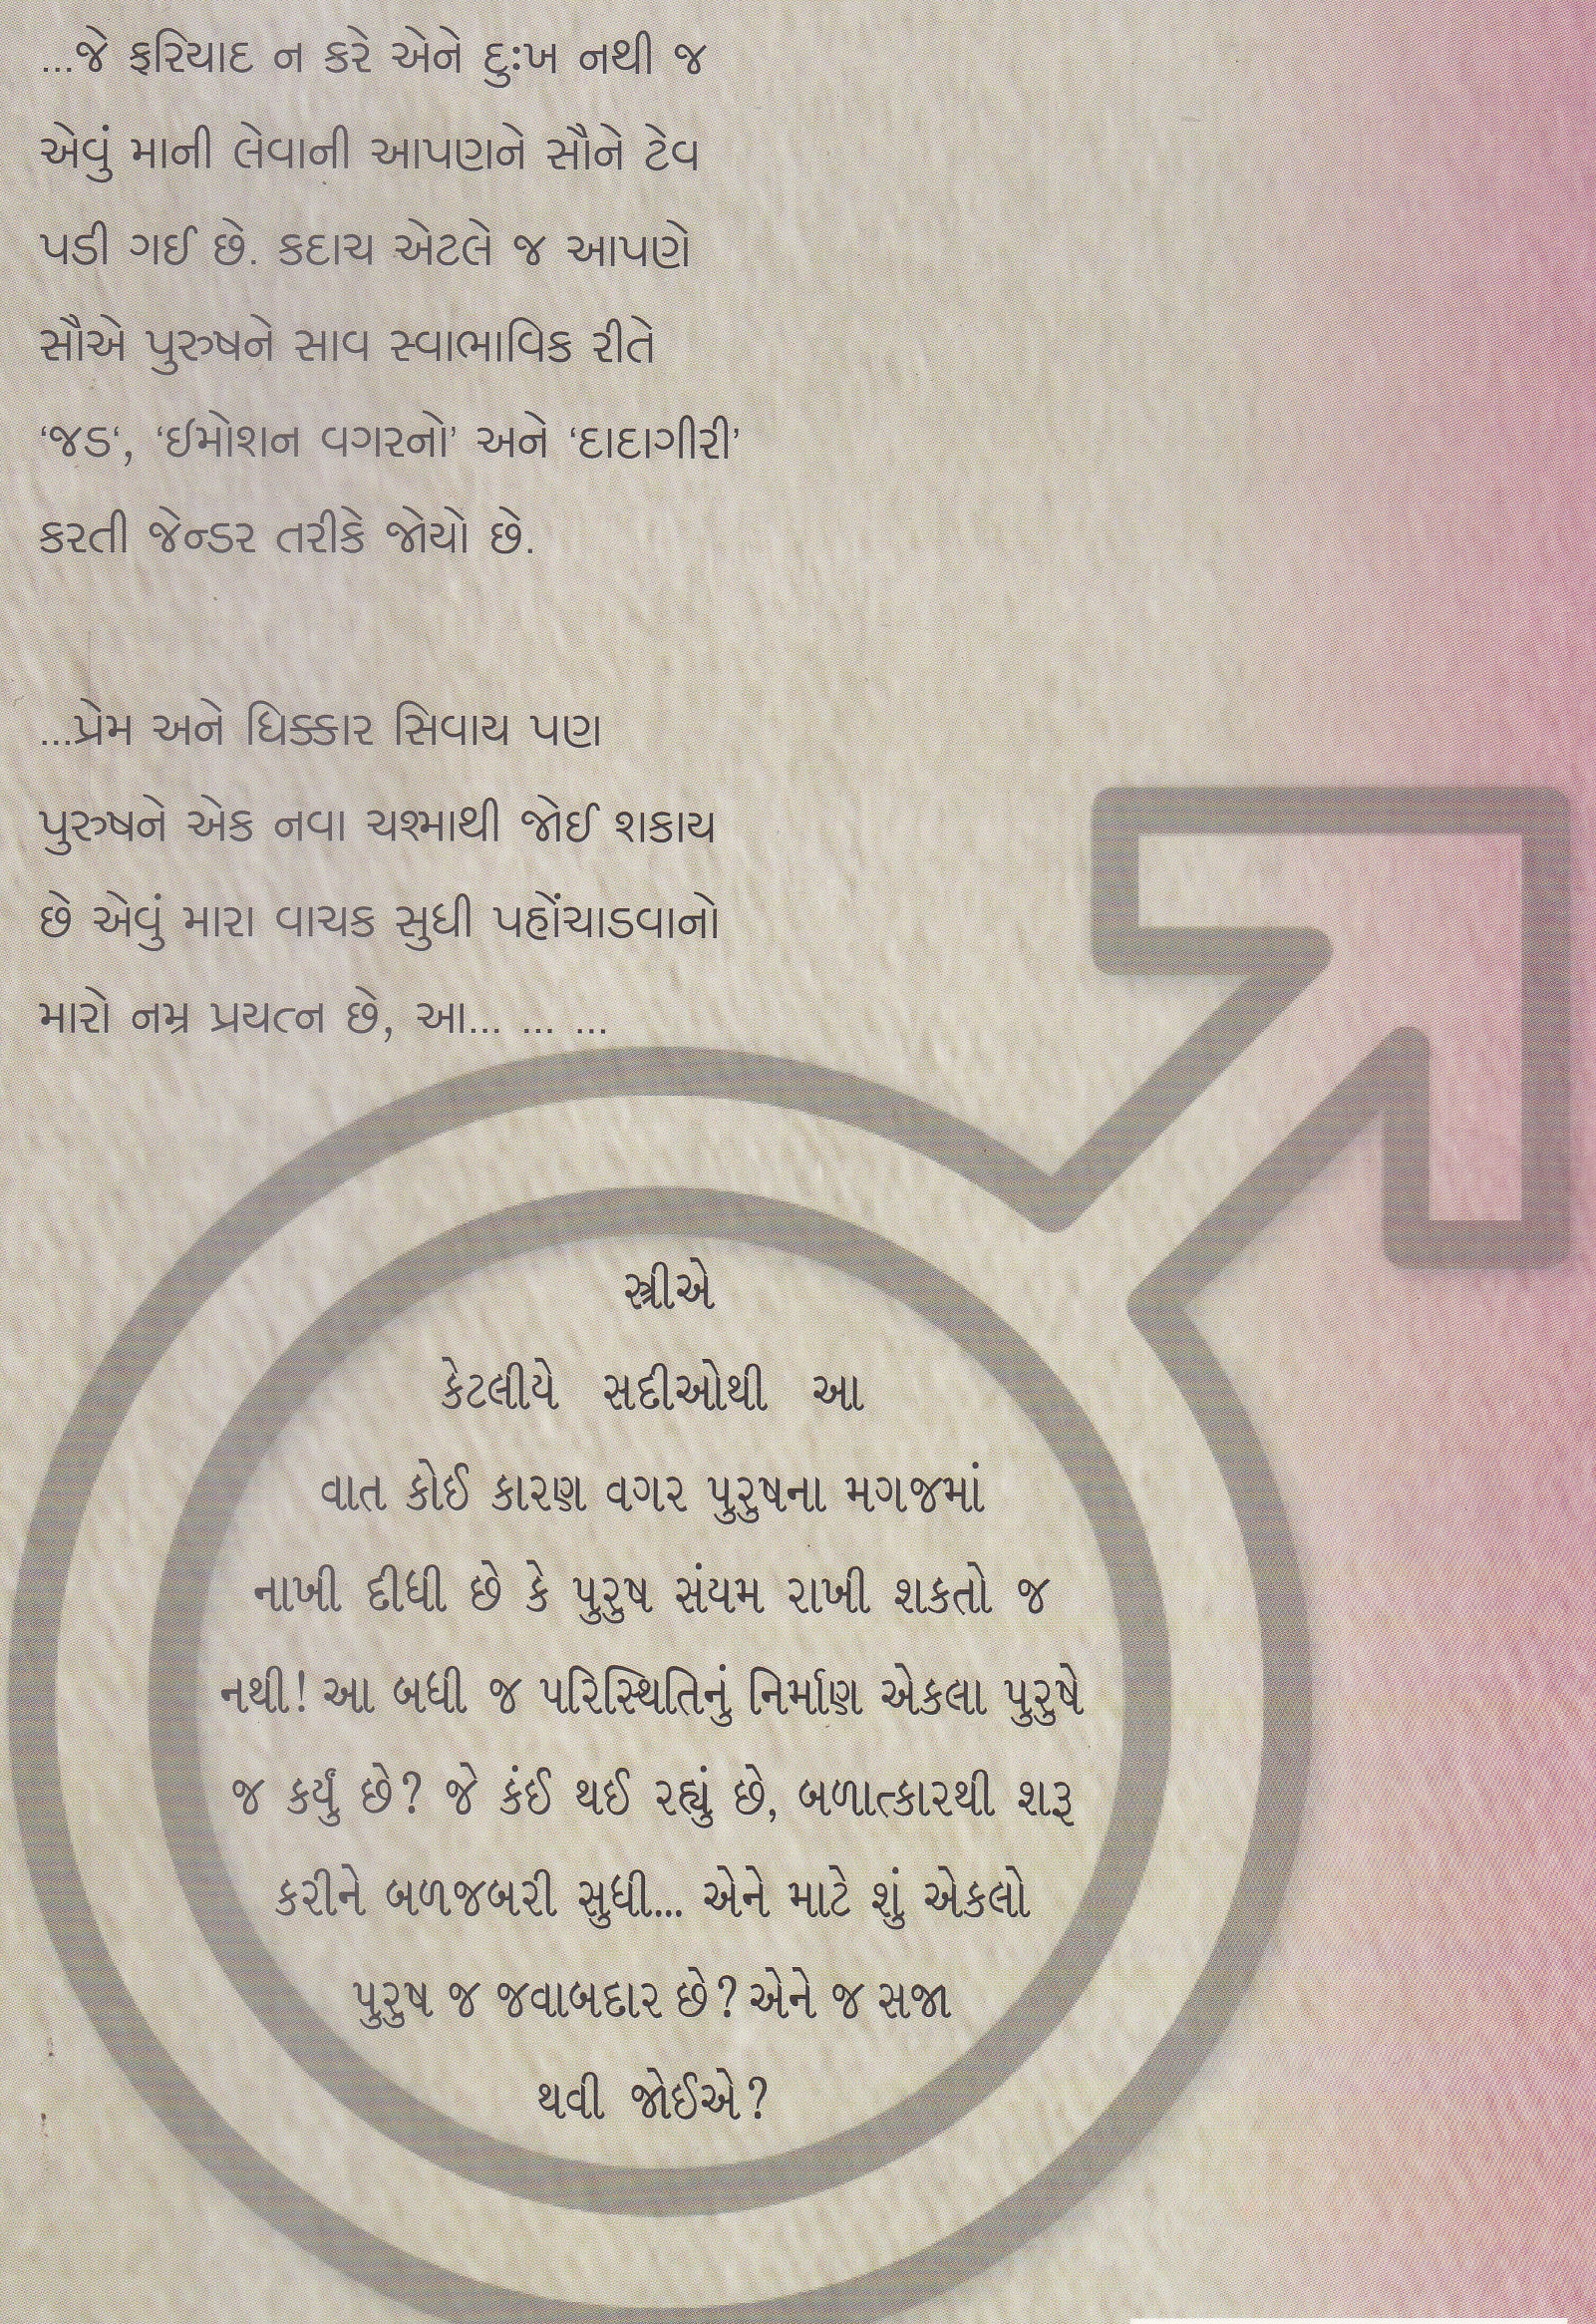 ...જે ફરિયાદ ન કરે એને દુઃખ નથી જ
એવું માની લેવાની આપણને સૌને ટેવ
પડી ગઈ છે. કદાચ એટલે જ આપણે
સૌએ પુરુષને સાવ સ્વાભાવિક રીતે
‘જડ‘, ‘ઈમોશન વગરનો’ અને ‘દાદાગીરી’
કરતી જેન્ડર તરીકે જોયો છે.
...પ્રેમ અને ધિક્કાર સિવાય પણ
પુરુષને એક નવા ચશ્માથી જોઈ શકાય
છે એવું મારા વાચક સુધી પહોંચાડવાનો
મારો નમ્ર પ્રયત્ન છે, આ... ... ...
સ્ત્રીએ
કેટલીયે સદીઓથી આ
વાત કોઈ કારણ વગર પુરુષના મગજમાં
નાખી દીધી છે કે પુરુષ સંયમ રાખી શકતો જ
નથી! આ બધી જ પરિસ્થિતિનું નિર્માણ એકલા પુરુષે
જ કર્યું છે? જે કંઈ થઈ રહ્યું છે, બળાત્કારથી શરૂ
કરીને બળજબરી સુધી... એને માટે શું એકલો
પુરુષ જ જવાબદાર છે? એને જ સજા
થવી જોઈએ?